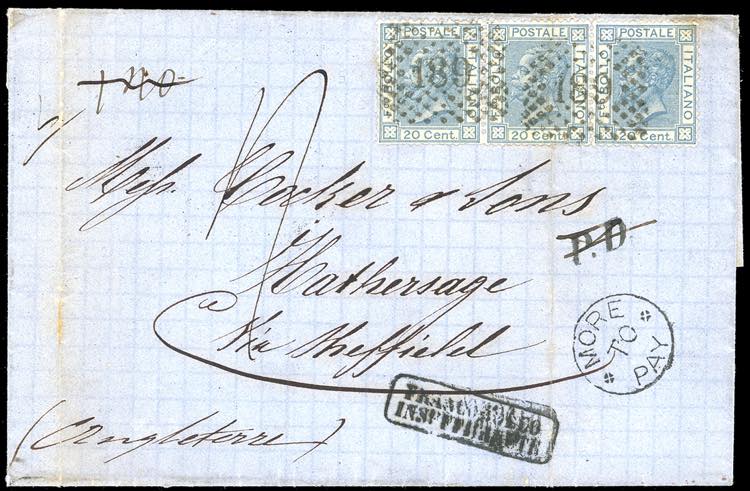 POSTALE POSTALE POSTALE
F. BOLLO ITALIANO F. BOLLO ITALIANO F. BOLLO ITALIANO
189 189
20 Cent. 20 Cent. 20 Cent.
Mess. Cocker & Sons
P.D
Hathersage
Via Sheffield
MORE TO PAY
FRANCOBOLLO
INSUFFICIENTE
(Angleterre)